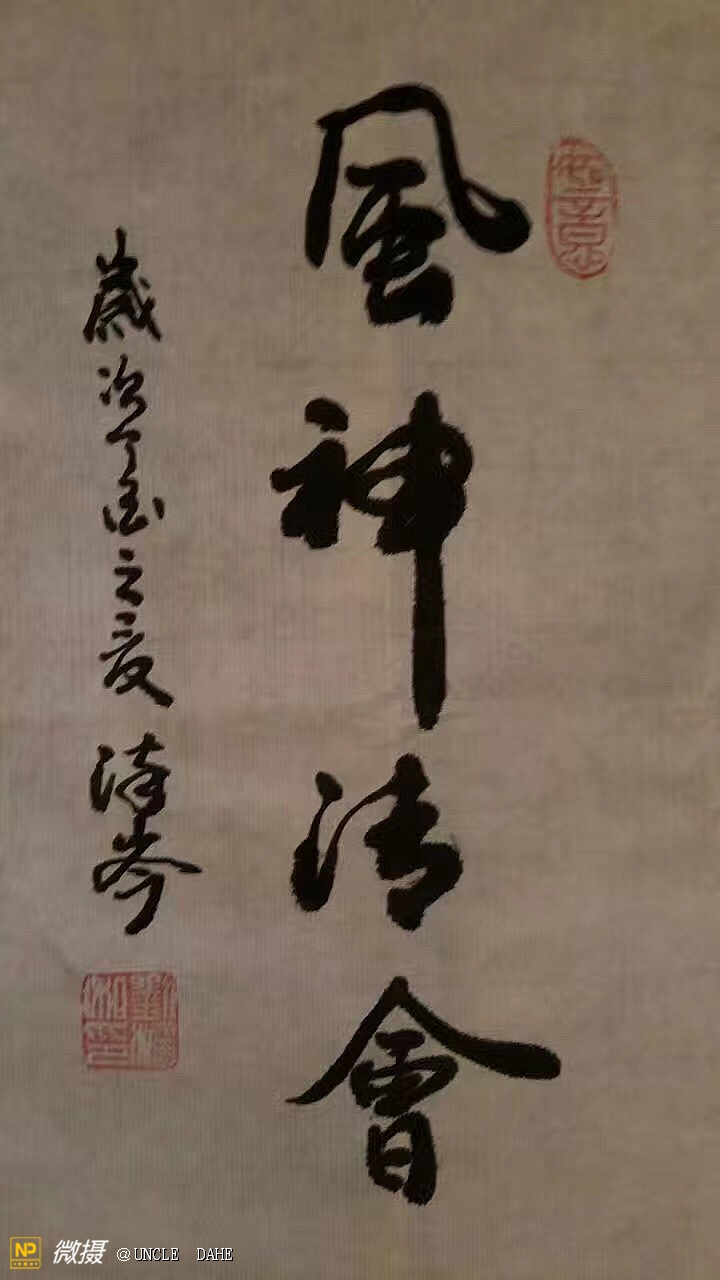 風神清會
歲次丁酉之夏 岑
NP 微摄 @UNCLE DAHE